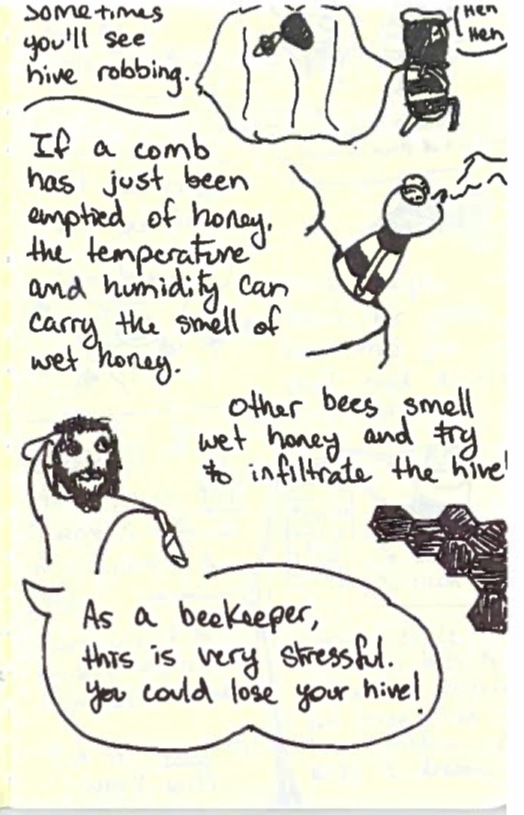 Sometimes
you'll see
hive robbing.
Heh
Heh
If a comb
has just been
emptied of honey,
the temperature
and humidity can
carry the smell of
wet honey.
Other bees smell
wet honey and try
to infiltrate the hive!
As a beekeeper,
this is very stressful.
You could lose your hive!